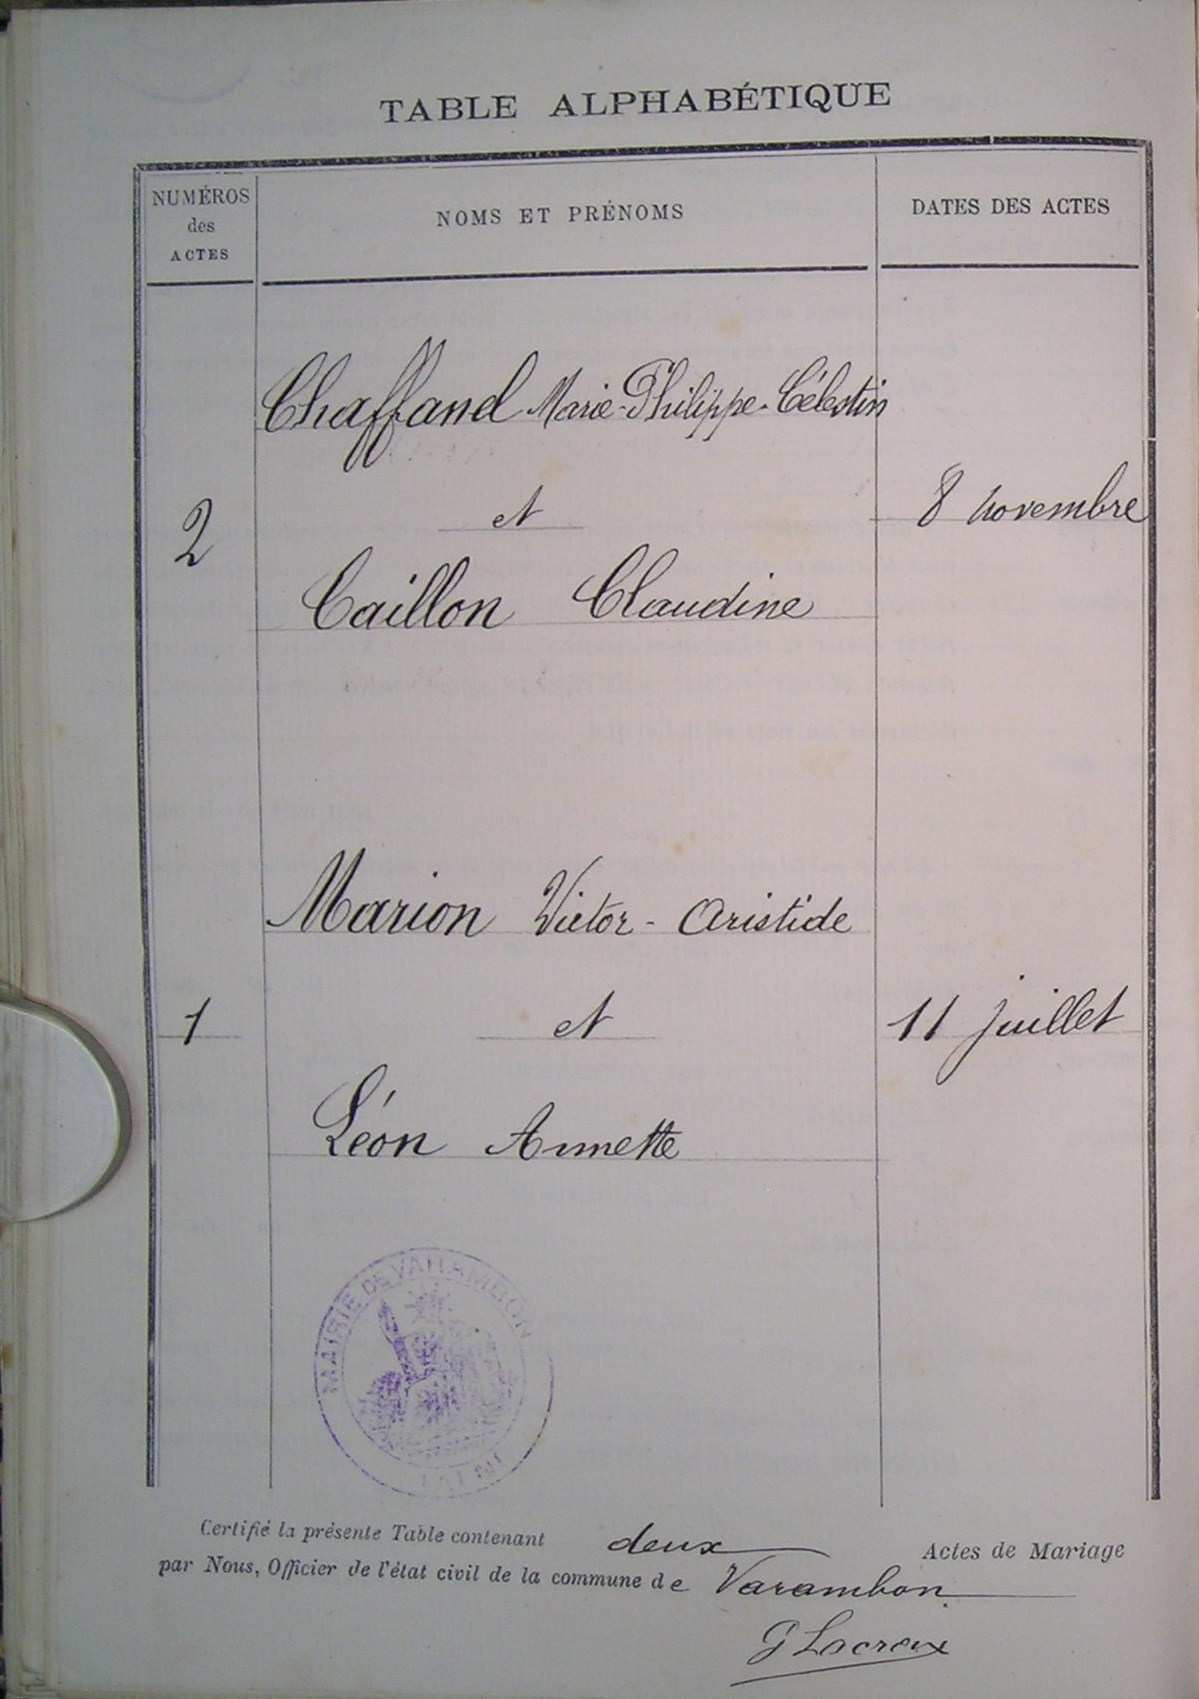 TABLE ALPHABÉTIQUE
NUMÉROS des ACTES
NOMS ET PRÉNOMS
DATES DES ACTES
Chaffand Marie-Philippe-Célestin
2 et 8 novembre
Caillon Claudine
Marion Victor-Aristide
1 et 11 juillet
Léon Annette
MAIRIE DE VARAMBON
(AIN)
Certifié la présente Table contenant deux Actes de Mariage
par Nous, Officier de l'état civil de la commune de Varambon
G Lacroix